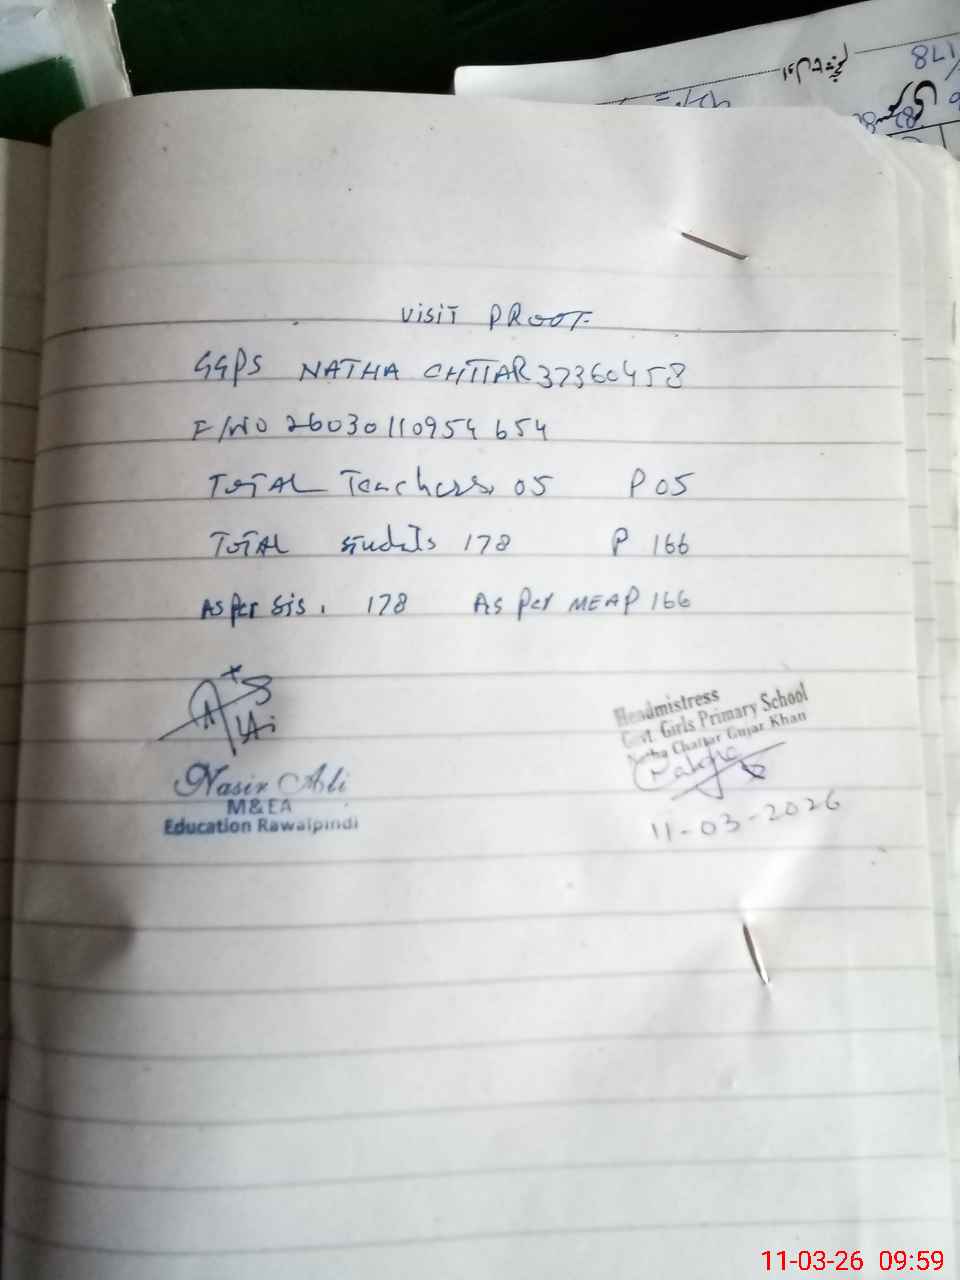 178
VISIT PROOF
GGPS NATHA CHTTAR 37360458
F/NO 26030110954654
TOTAL Teachers 05 P 05
TOTAL Students 178 P 166
As Per Sis. 178 As Per MEAP 166
Nasir Ali
M&EA
Education Rawalpindi
Headmistress
Govt Girls Primary School
Chattar Gujar Khan
11-03-2026
11-03-26 09:59